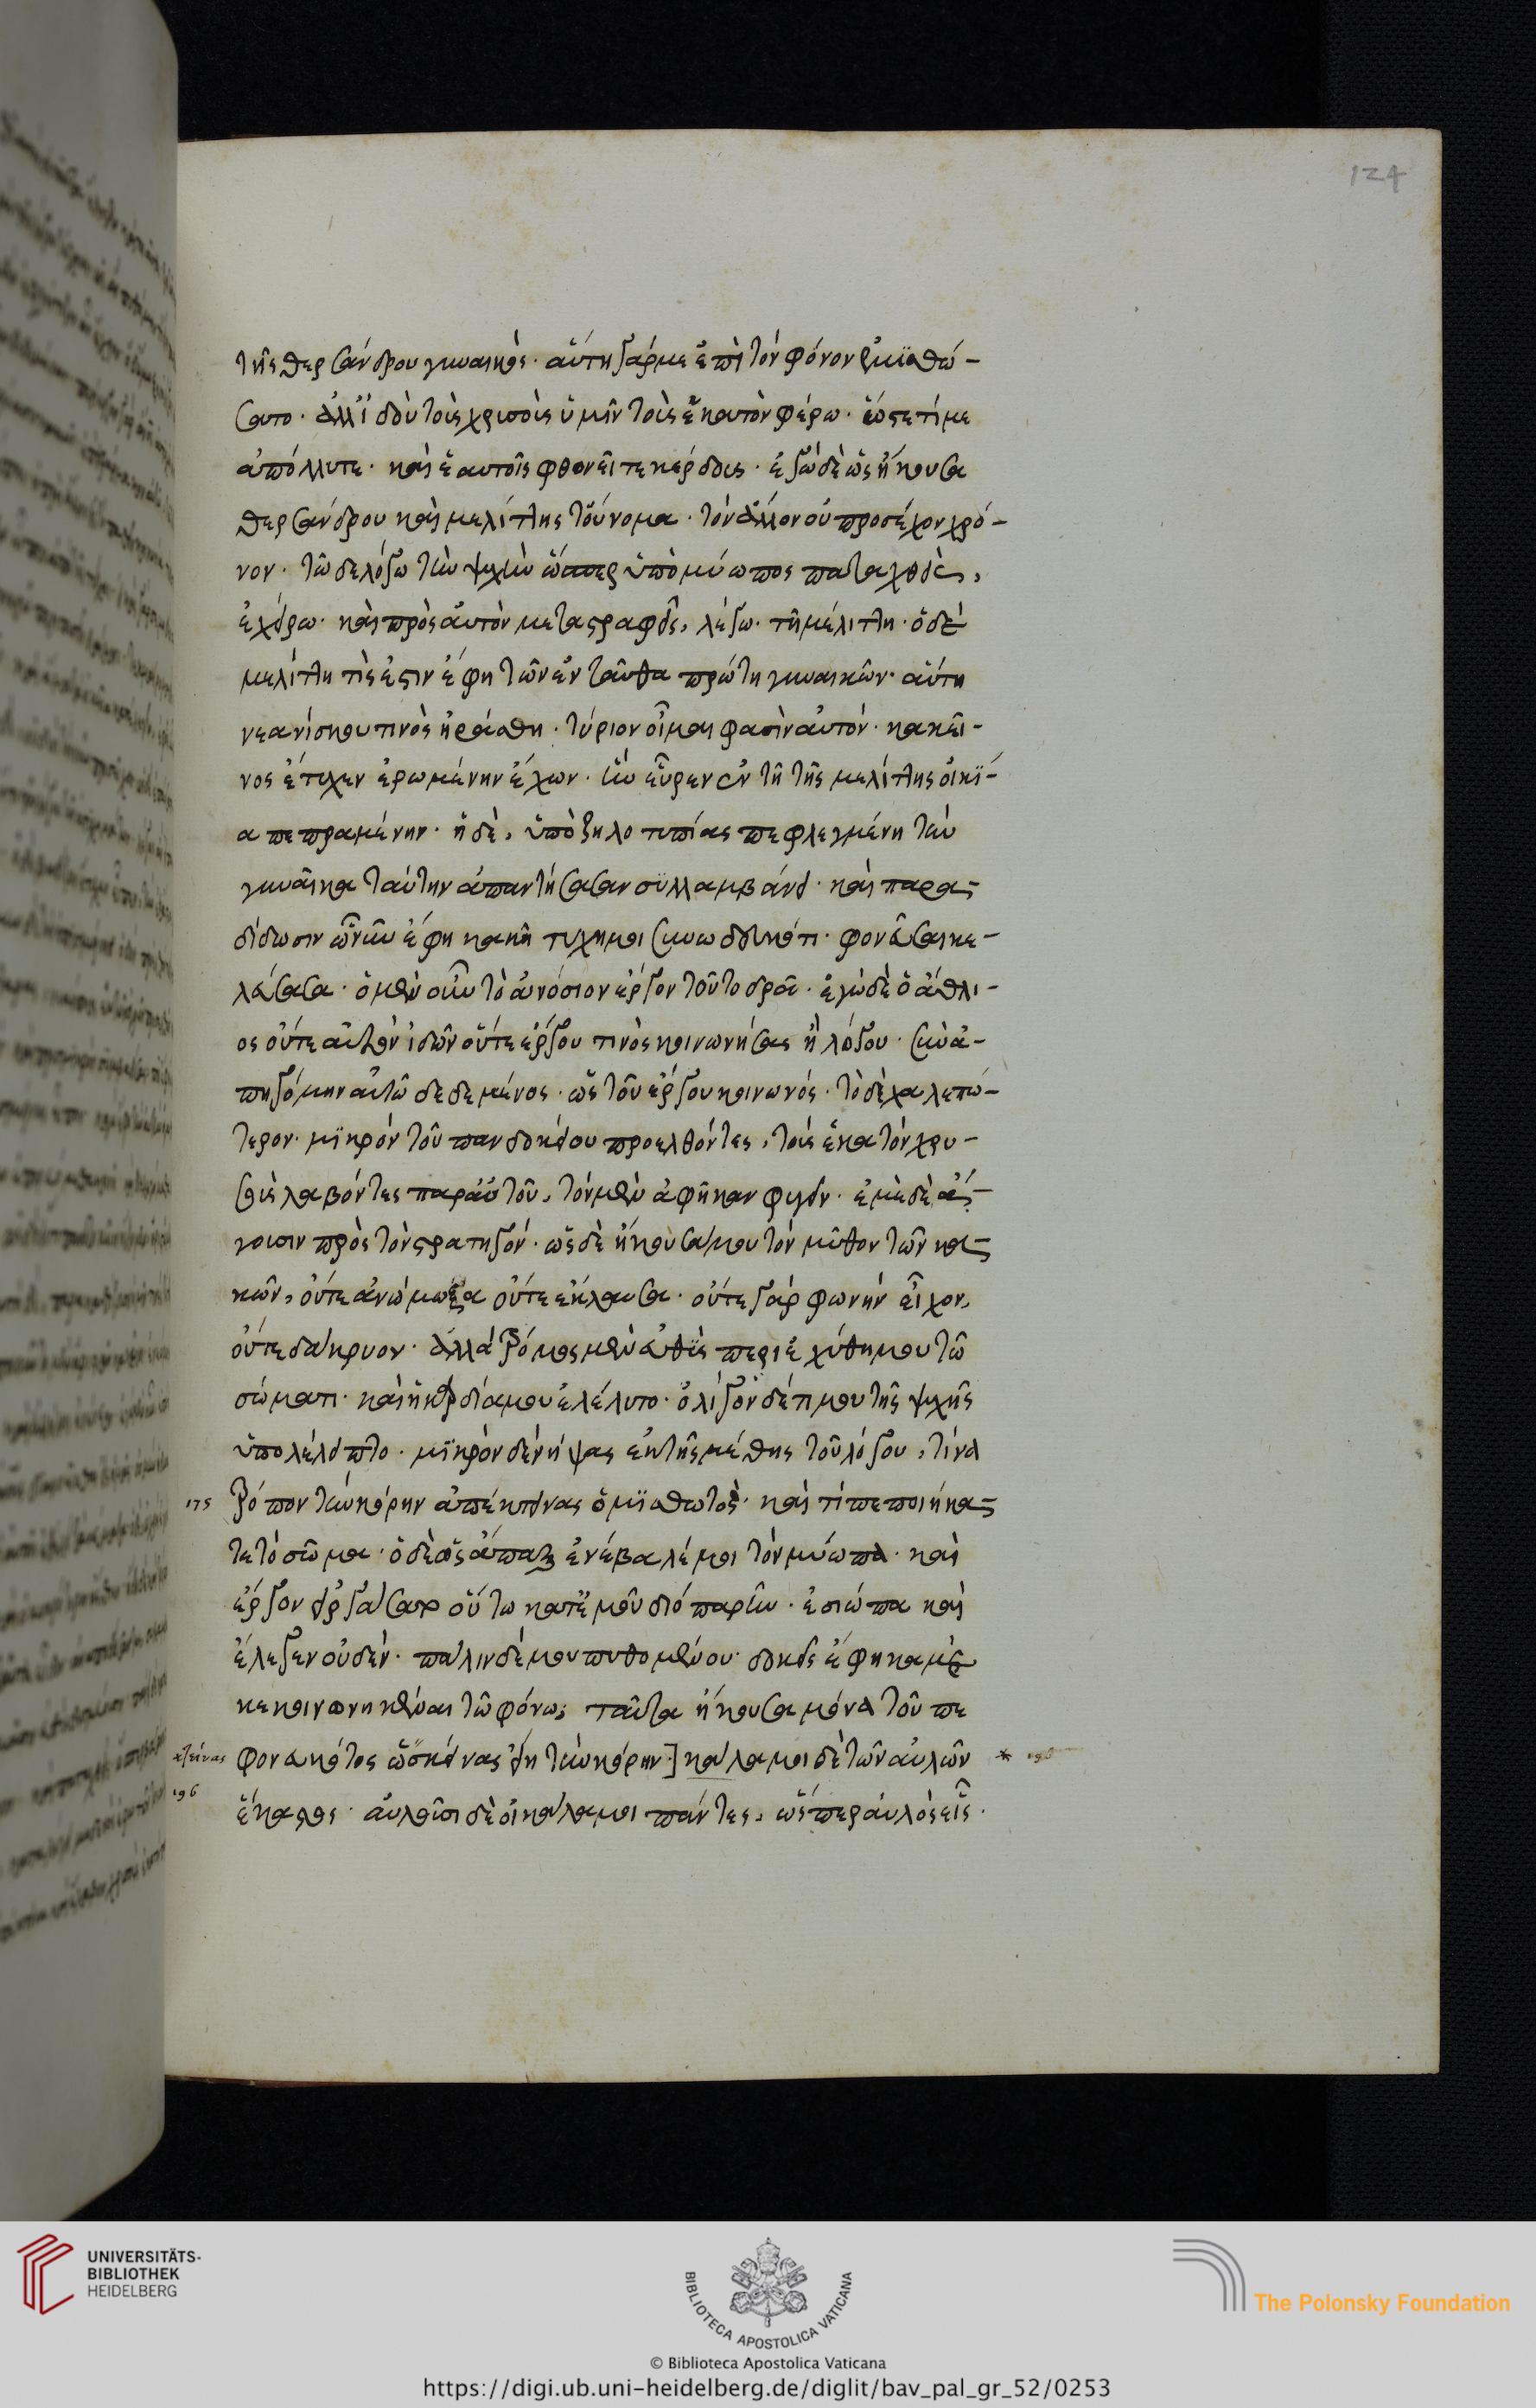 124
τῆς θερσάνδρου γυναικός· αὕτη γάρ με ἐπὶ τὸν φόνον ἐμισθώ-
σατο· ἀλλ' ἰδοὺ τοὺς χρυσοὺς ὑμῖν τοὺς ἑκατὸν φέρω· ὥστε τί με
ἀπόλλυτε· καὶ ἑαυτοῖς φθονεῖτε κέρδους· ἐγὼ δὲ ὡς ἤκουσα
θερσάνδρου καὶ μελίττης τοὔνομα· τὸν ἄλλον οὐ προσέχον χρό-
νον· τῶ δε λόγω τὴν ψυχὴν ὥσπερ ὑπὸ μύωπος παταχθεὶς,
ἐγείρω· καὶ πρὸς αὐτὸν μεταστραφεὶς, λέγω· τῆ μελίττη· ὁ δὲ
μελίττη τίς ἐστιν ἔφη τῶν ἐνταῦθα πρώτη γυναικῶν· αὕτη
νεανίσκου τινὸς ἠράσθη· τύριον οἶμαι φασὶν αὐτόν· κακεῖ-
νος ἔτυχεν ἐρωμένην ἔχων· ἣν εὗρεν ἐν τῆ τῆς μελίττης οἰκί-
α πεπραμένην· ἡ δὲ, ὑπὸ ζηλοτυπίας πεφλεγμένη τὴν
γυναῖκα ταύτην ἀπαντήσασαν συλλαμβάνει· καὶ παρα-
δίδωσιν ὧ νῦν ἔφη κακῆ τύχη μοι συνωδευκότι· φονεῦσαι κε-
λεύσασα· ὁ μὲν οὖν τὸ ἀνόσιον ἔργον τοῦτο δρᾶ· ἐγὼ δὲ ὁ ἄθλι-
ος οὔτε αὐτὸν ἰδὼν οὔτε ἔργου τινὸς κοινωνήσας ἢ λόγου· συνα-
πηγόμην αὐτῶ δεδεμένος· ὡς τοῦ ἔργου κοινωνός· τὸ δὲ χαλεπώ-
τερον· μικρὸν τοῦ πανδοκείου προελθόντες, τοὺς ἑκατὸν χρυ-
σοὺς λαβόντες παρ' αὐτοῦ, τὸν μὲν ἀφῆκαν φυγεῖν· ἐμὲ δὲ ἄ-
γουσιν πρὸς τὸν στρατηγόν· ὡς δὲ ἤκουσά μου τὸν μῦθον τῶν κα-
κῶν, οὔτε ἀνώμωξα οὔτε ἔκλαυσα· οὔτε γὰρ φωνὴν εἶχον,
οὔτε δάκρυον· ἀλλὰ τρόμος μὲν εὐθὺς περιεχύθη μου τῶ
σώματι· καὶ ἡ καρδία μου ἐλέλυτο· ὀλίγον δέ τι μου τῆς ψυχῆς
ὑπολέλειπτο· μικρὸν δὲ νήψας ἐκ τῆς μέθης τοῦ λόγου, τίνα
175 τρόπον τὴν κόρην ἀπέκτεινας ὁ μισθωτὸς· καὶ τί πεποιήκα-
τε τὸ σῶμα· ὁ δὲ ὡς ἅπαξ ἐνέβαλέ μοι τὸν μύωπα· καὶ
ἔργον εἰργάσατο οὕτω κατ' ἐμοῦ διὸ παρῆν· ἐσιώπα καὶ
ἔλεγεν οὐδέν· πάλιν δέ μου πυθομένου· δοκεῖς ἔφη κἀμὲ
κεκοινωνηκέναι τῶ φόνω; ταῦτα ἤκουσα μόνα τοῦ πε
κτείνας φονευκότος ὡς κτείνας εἴη τὴν κόρην·] κάλαμοι δὲ τῶν αὐλῶν * 196
196 ἕκαστος· αὐλοῦσι δὲ οἱ κάλαμοι πάντες, ὥσπερ αὐλὸς εἷς·
UNIVERSITÄTS-
BIBLIOTHEK
HEIDELBERG
BIBLIOTECA APOSTOLICA VATICANA
© Biblioteca Apostolica Vaticana
The Polonsky Foundation
https://digi.ub.uni-heidelberg.de/diglit/bav_pal_gr_52/0253